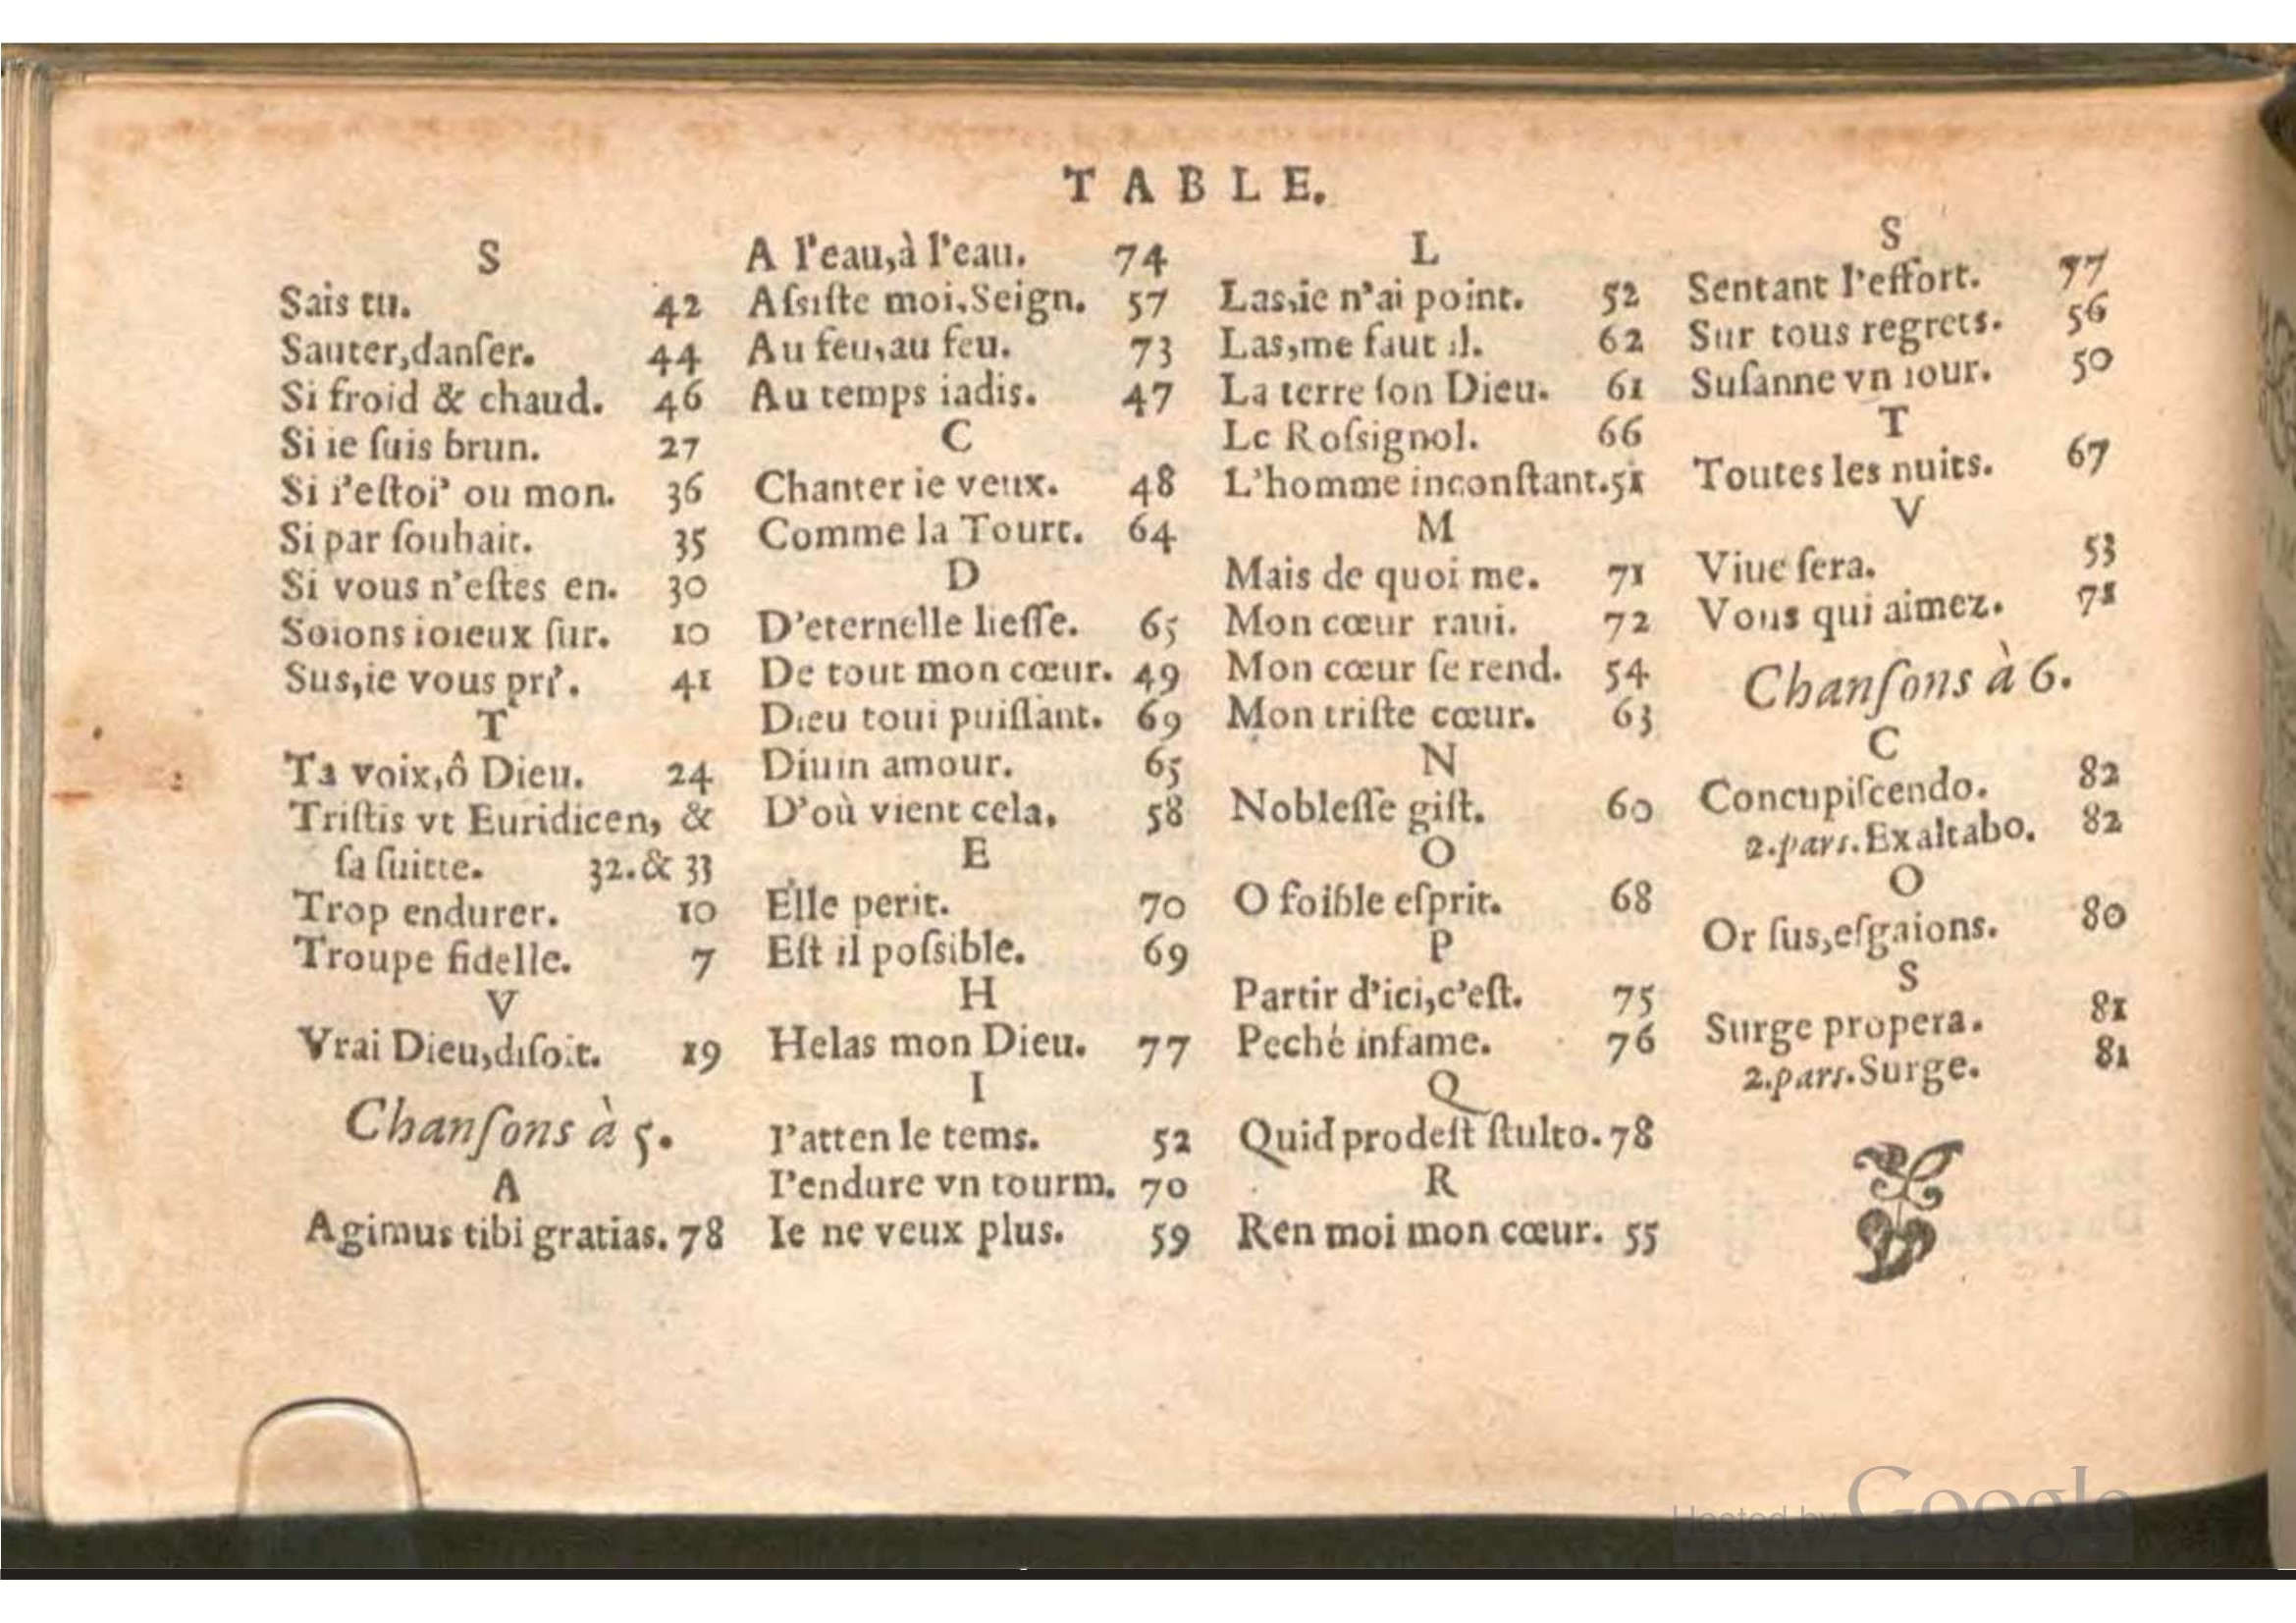 TABLE.
S
Sais tu. 42
Sauter,danſer. 44
Si froid & chaud. 46
Si ie ſuis brun. 27
Si i'eſtoi' ou mon. 36
Si par ſouhait. 35
Si vous n'eſtes en. 30
Soions ioieux ſur. 10
Sus,ie vous pri'. 41
T
Ta voix,ô Dieu. 24
Triſtis vt Euridicen, &
ſa ſuitte. 32.& 33
Trop endurer. 10
Troupe fidelle. 7
V
Vrai Dieu,diſoit. 19
Chanſons à 5.
A
Agimus tibi gratias. 78
A l'eau,à l'eau. 74
Aſsiſte moi,Seign. 57
Au feu,au feu. 73
Au temps iadis. 47
C
Chanter ie veux. 48
Comme la Tourt. 64
D
D'eternelle lieſſe. 65
De tout mon cœur. 49
Dieu toui puiſſant. 69
Diuin amour. 65
D'où vient cela. 58
E
Elle perit. 70
Eſt il poſsible. 69
H
Helas mon Dieu. 77
I
I'atten le tems. 52
I'endure vn tourm. 70
Ie ne veux plus. 59
L
Las,ie n'ai point. 52
Las,me faut il. 62
La terre ſon Dieu. 61
Le Roſsignol. 66
L'homme inconſtant. 51
M
Mais de quoi me. 71
Mon cœur raui. 72
Mon cœur ſe rend. 54
Mon triſte cœur. 63
N
Nobleſſe giſt. 60
O
O foible eſprit. 68
P
Partir d'ici,c'eſt. 75
Peché infame. 76
Q
Quid prodeſt ſtulto. 78
R
Ren moi mon cœur. 55
S
Sentant l'effort. 77
Sur tous regrets. 56
Suſanne vn iour. 50
T
Toutes les nuits. 67
V
Viue ſera. 53
Vous qui aimez. 71
Chanſons à 6.
C
Concupiſcendo. 82
2.pars.Exaltabo. 82
O
Or ſus,eſgaions. 80
S
Surge propera. 81
2.pars.Surge. 81
Hosted by Google